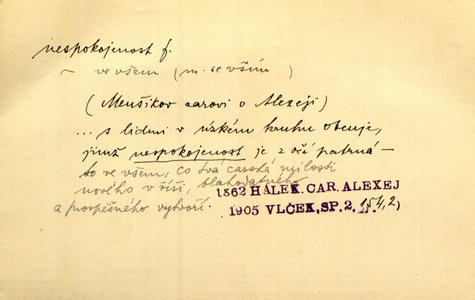 nespokojenost f.
~ ve všem (m. se vším)
(Menšikov carovi o Alexeji)
... s lidmi v úzkém kruhu obcuje,
jimž nespokojenost je z očí patrná –
to ve všem, co tvá carská milosti
nového v říši, blahodatného
a prospěšného vytvoří.
1862 HÁLEK, CAR. ALEXEJ
1905 VLČEK, SP. 2, 154, 2)